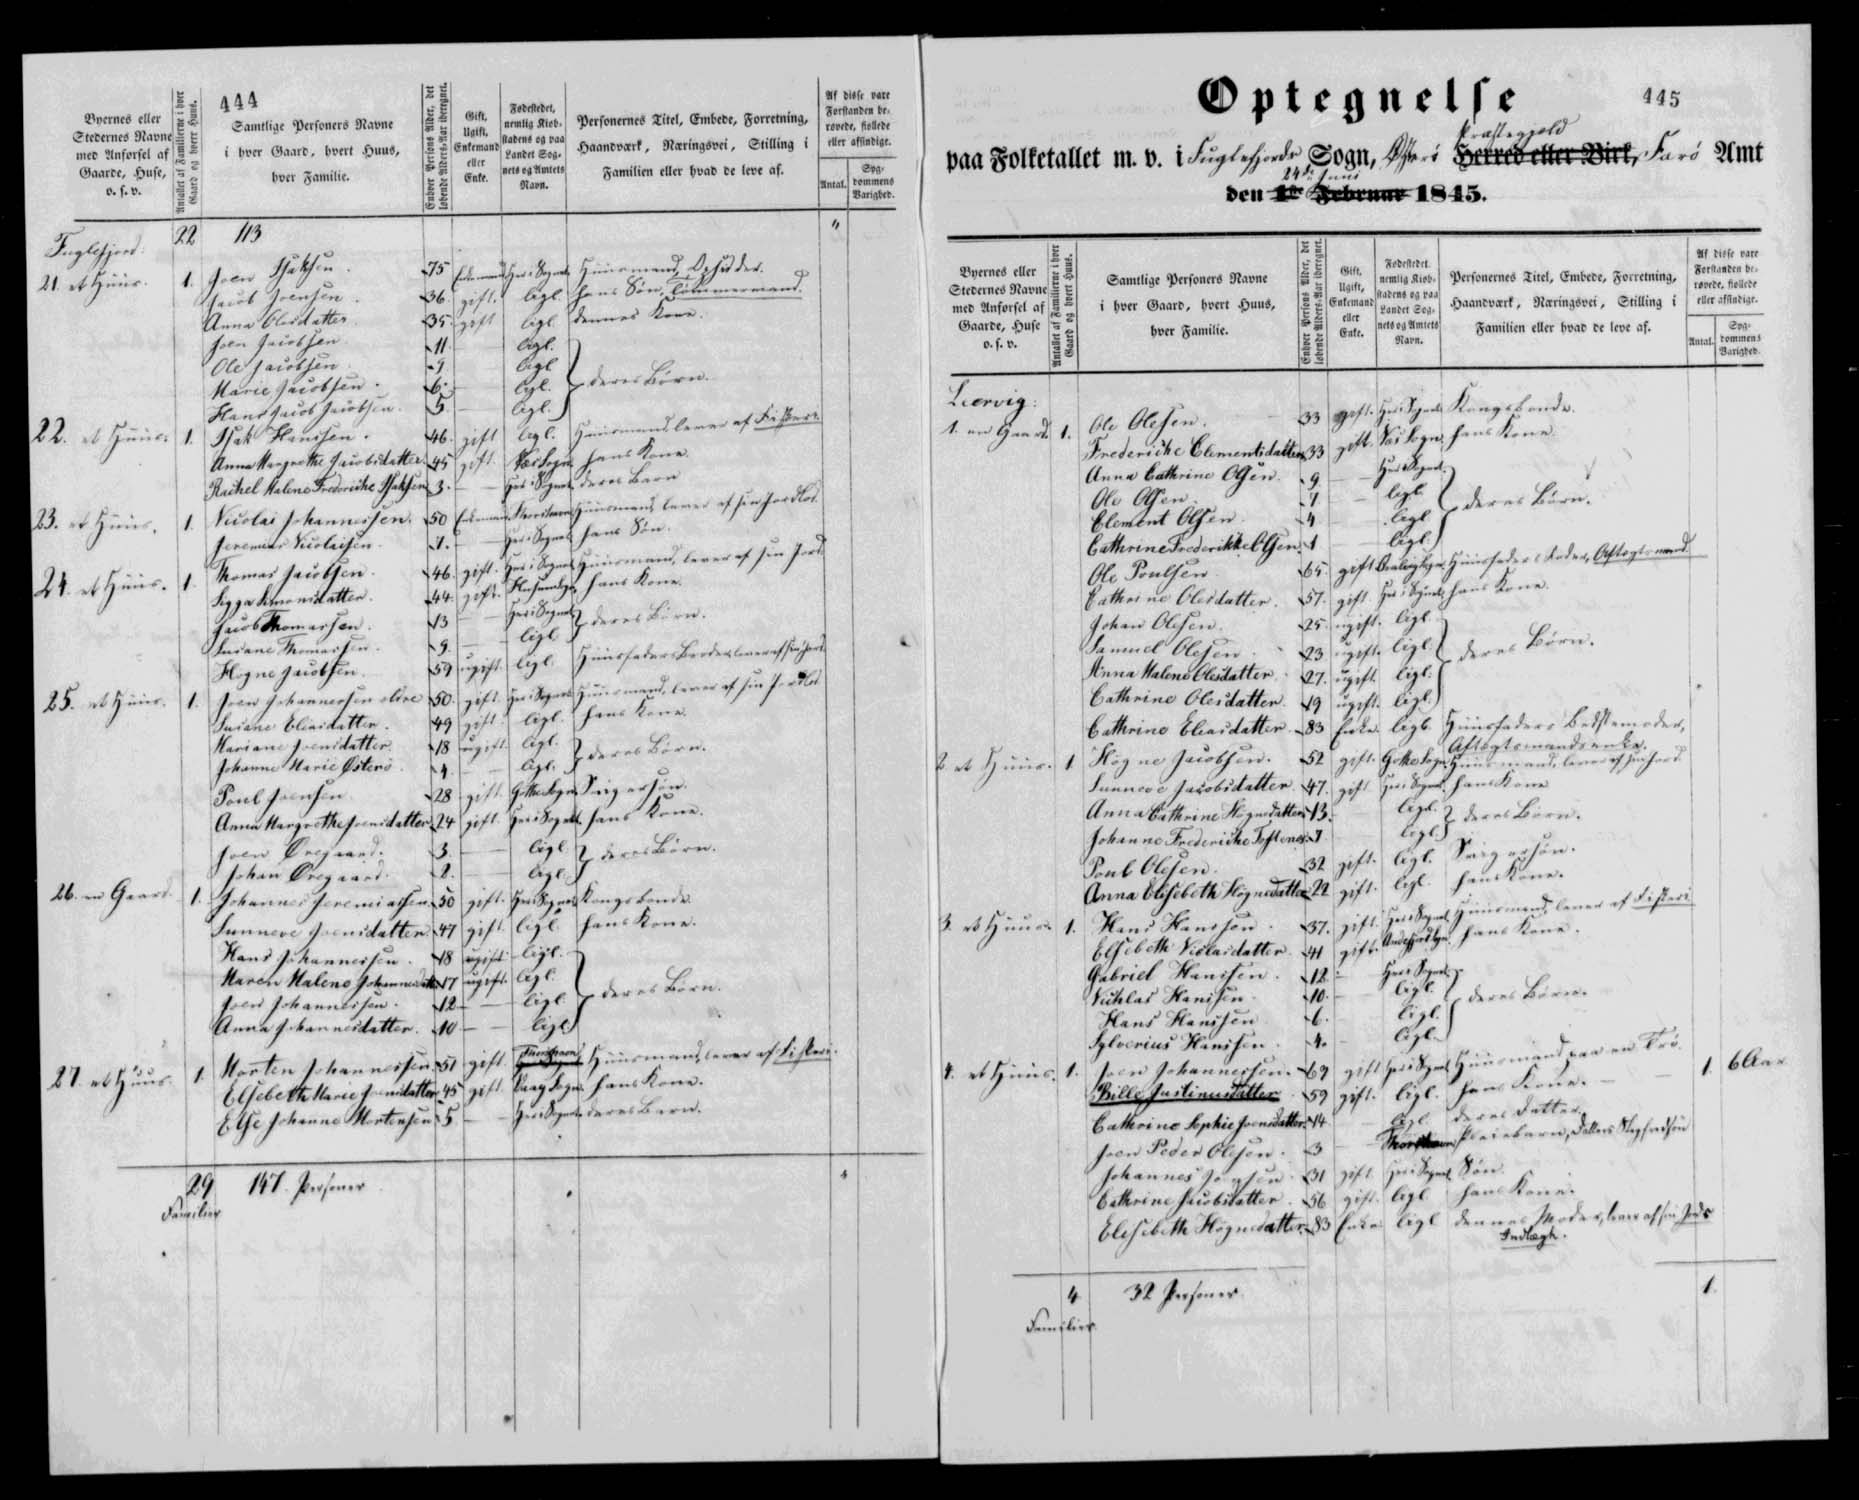 444
Byernes eller Stedernes Navne med Anførsel af Gaarde, Huse, o. s. v.
Antallet af Familierne i hver Gaard og hvert Huus.
Samtlige Personers Navne i hver Gaard, hvert Huus, hver Familie.
Enhver Persons Alder, det løbende Alders-Aar iberegnet.
Gift, Ugift, Enkemand eller Enke.
Fødestedet, nemlig Kiøbstadens og paa Landet Sognets og Amtets Navn.
Personernes Titel, Embede, Forretning, Haandværk, Næringsvei, Stilling i Familien eller hvad de leve af.
Af disse vare Forstanden berøvede, fiollede eller afsindige.
Antal.
Sygdommens Varighed.
Fuglefjord. 22 113 "
21. et Huus. 1. Joen Isaksen. 75 Enkemand Her i Sognet Huusmand,
Jacob Joensen. 36. gift. ligl. hans Søn, Tømmermand.
Anna Olesdatter 35. gift ligl. dennes Kone.
Joen Jacobsen 11. ligl.
Ole Jacobsen 9 ligl
Marie Jacobsen. 6. ligl. deres Børn.
Hans Jacob Jacobsen. 5 ligl.
22. et Huus. 1. Isak Hansen. 46. gift ligl. Huusmand, lever af Fiskeri.
Anna Margrethe Jacobsdatter. 45 gift. Næs Sogn. hans Kone.
Rachel Malene Frederikke Isaksen 3. — Her i Sognet deres Barn
23. et Huus. 1. Nicolai Johannessen. 50 Enkemand Thorshavn Huusmand, lever af sin Jordlod
Jeremias Nicolaisen. 1. — Her i Sognet hans Søn.
24. et Huus. 1. Thomas Jacobsen. 46. gift. Her i Sognet Huusmand, lever af sin Jord
Sigga Simonsdatter. 44. gift. hans Kone.
Jacob Thomassen. 13 — Her i Sognet deres Børn.
Susane Thomassen. 9. — ligl
Høgne Jacobsen. 59 ugift. ligl. Huusfaders Broder, lever af sin Jord
25. et Huus. 1. Joen Johannessen 50. gift. Her i Sognet Huusmand, lever af sin Jordlod
Susane Eliasdatter. 49 gift. ligl. hans Kone.
Mariane Joensdatter 18 ugift. ligl. deres Børn.
Johanne Marie Østerø. 4. — ligl.
Poul Joensen 28 gift. Gøthe Sogn
Anna Margrethe Joensdatter 24 gift. Her i Sognet hans Kone.
Joen Øregaard. 3. — ligl deres Børn.
Johan Øregaard. 2. — ligl
26. en Gaard. 1. Johannes Jeremiassen. 50 gift. Her i Sognet Kongsbonde.
Sunneve Joensdatter 47 gift. ligl. hans Kone.
Hans Johannessen. 18 ugift ligl.
Maren Malene Johannesdatter 17 ugift. ligl. deres Børn.
Joen Johannessen. 12 — ligl.
Anna Johannesdatter. 10 — ligl
27. et Huus. 1. Morten Johannessen. 51 gift. Thorshavn Huusmand, lever af Fiskeri.
Elsebeth Marie Joensdatter 45 gift. Vaag Sogn. hans Kone.
Else Johanne Mortensen 5 — Her i Sognet deres Barn.
29 147. Personer
Familier
445
Optegnelse
paa Folketallet m. v. i Fuglefjords Sogn, Østerø Præstegjeld Herred eller Birk, Farø Amt
den 24de Juni 1ste Februar 1845.
Byernes eller Stedernes Navne med Anførsel af Gaarde, Huse o. s. v.
Antallet af Familierne i hver Gaard og hvert Huus.
Samtlige Personers Navne i hver Gaard, hvert Huus, hver Familie.
Enhver Persons Alder, det løbende Alders-Aar iberegnet.
Gift, Ugift, Enkemand eller Enke.
Fødestedet, nemlig Kiøbstadens og paa Landet Sognets og Amtets Navn.
Personernes Titel, Embede, Forretning, Haandværk, Næringsvei, Stilling i Familien eller hvad de leve af.
Af disse vare Forstanden berøvede, fiollede eller afsindige.
Antal.
Sygdommens Varighed.
Leervig.
1. en Gaard. 1. Ole Olesen. 33 gift. Her i Sognet Kongsbonde.
Frederikke Clementsdatter 33 gift. Næs Sogn. hans Kone.
Anna Cathrine Olsen. 9 — Her i Sognet
Ole Olsen. 7 — ligl deres Børn.
Clement Olsen 4 — ligl.
Cathrine Frederikke Olsen. 1 — ligl.
Ole Poulsen 65. gift Huusfaders Fader, Aftægtsmand.
Cathrine Olesdatter. 57. gift. Her i Sognet hans Kone.
Johan Olesen. 25. ugift. ligl.
Samuel Olesen. 23 ugift. ligl. deres Børn.
Anna Malene Olesdatter 27. ugift. ligl.
Cathrine Olesdatter. 19 ugift. ligl.
Cathrine Eliasdatter. 83 Enke. ligl. Huusfaders Bedstemoder, Aftægtsmandsenke.
2. et Huus. 1. Høgne Jacobsen. 52 gift. Gøthe Sogn. Huusmand, lever af sin Jord.
Sunneve Jacobsdatter 47. gift Her i Sognet hans Kone
Anna Cathrine Høgnesdatter 13. — ligl. deres Børn.
Johanne Frederikke 7 ligl
Poul Olesen. 32 gift. ligl.
Anna Elisebeth Høgnesdatter 22 gift. ligl. hans Kone.
3. et Huus. 1. Hans Hansson. 37. gift. Her i Sognet Huusmand, lever af Fiskeri
Elsebeth Niclasdatter 41 gift. Andefjord Sogn hans Kone.
Gabriel Hansen. 12. — Her i Sognet
Nichlas Hansen. 10. — ligl. deres Børn.
Hans Hansen 6. — ligl.
Sylverius Hansen. 4. — ligl.
4. et Huus. 1. Joen Johannessen. 69 gift Her i Sognet Huusmand 1. 6 Aar
Bille Justinusdatter 59 gift. ligl. hans Kone.
Cathrine Sophie Joensdatter. 14 — ligl. deres Datter.
Joen Peder Olesen. 3 — Thorshavn Pleiebarn,
Johannes Joensen 31 gift. Her i Sognet Søn.
Cathrine Jacobsdatter. 56 gift. ligl hans Kone.
Elisebeth Høgnedatter. 83 Enke ligl dennes Moder, lever af sin Jord
4 32 Personer. 1.
Familier.